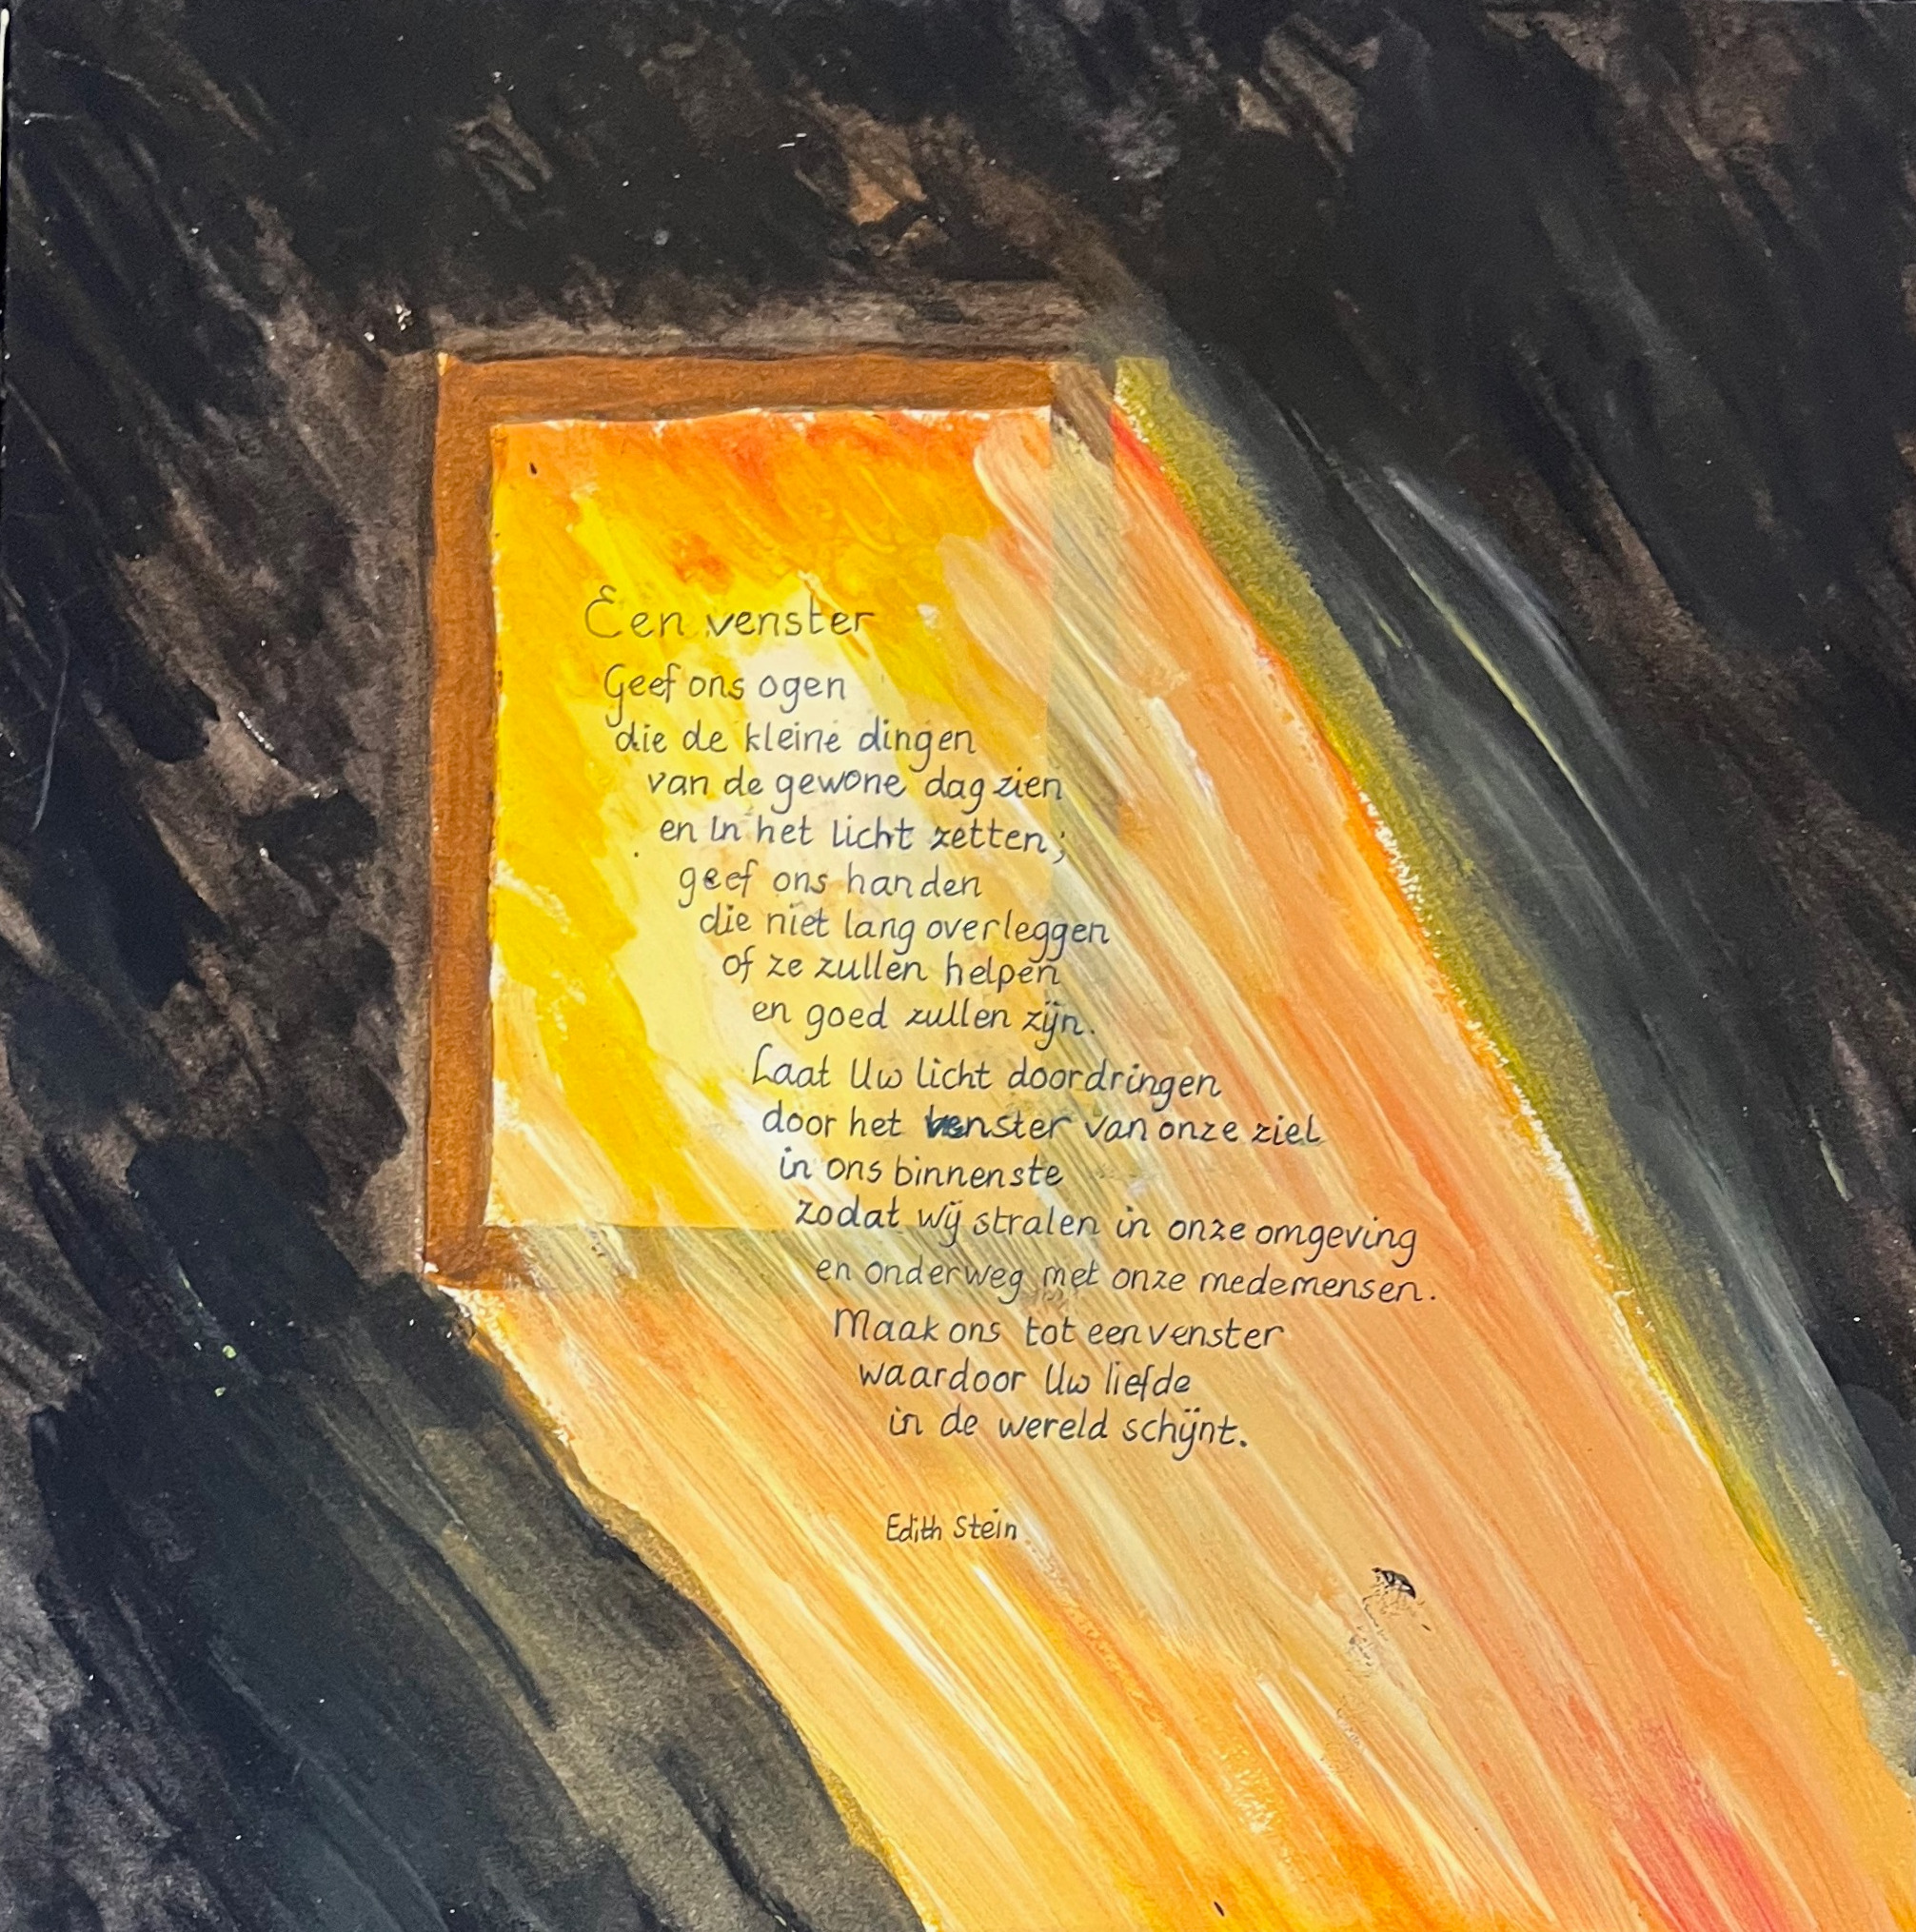 Een venster
Geef ons ogen
die de kleine dingen
van de gewone dag zien
en in het licht zetten;
geef ons handen
die niet lang overleggen
of ze zullen helpen
en goed zullen zijn.
Laat Uw licht doordringen
door het venster van onze ziel
in ons binnenste
zodat wij stralen in onze omgeving
en onderweg met onze medemensen.
Maak ons tot een venster
waardoor Uw liefde
in de wereld schijnt.
Edith Stein